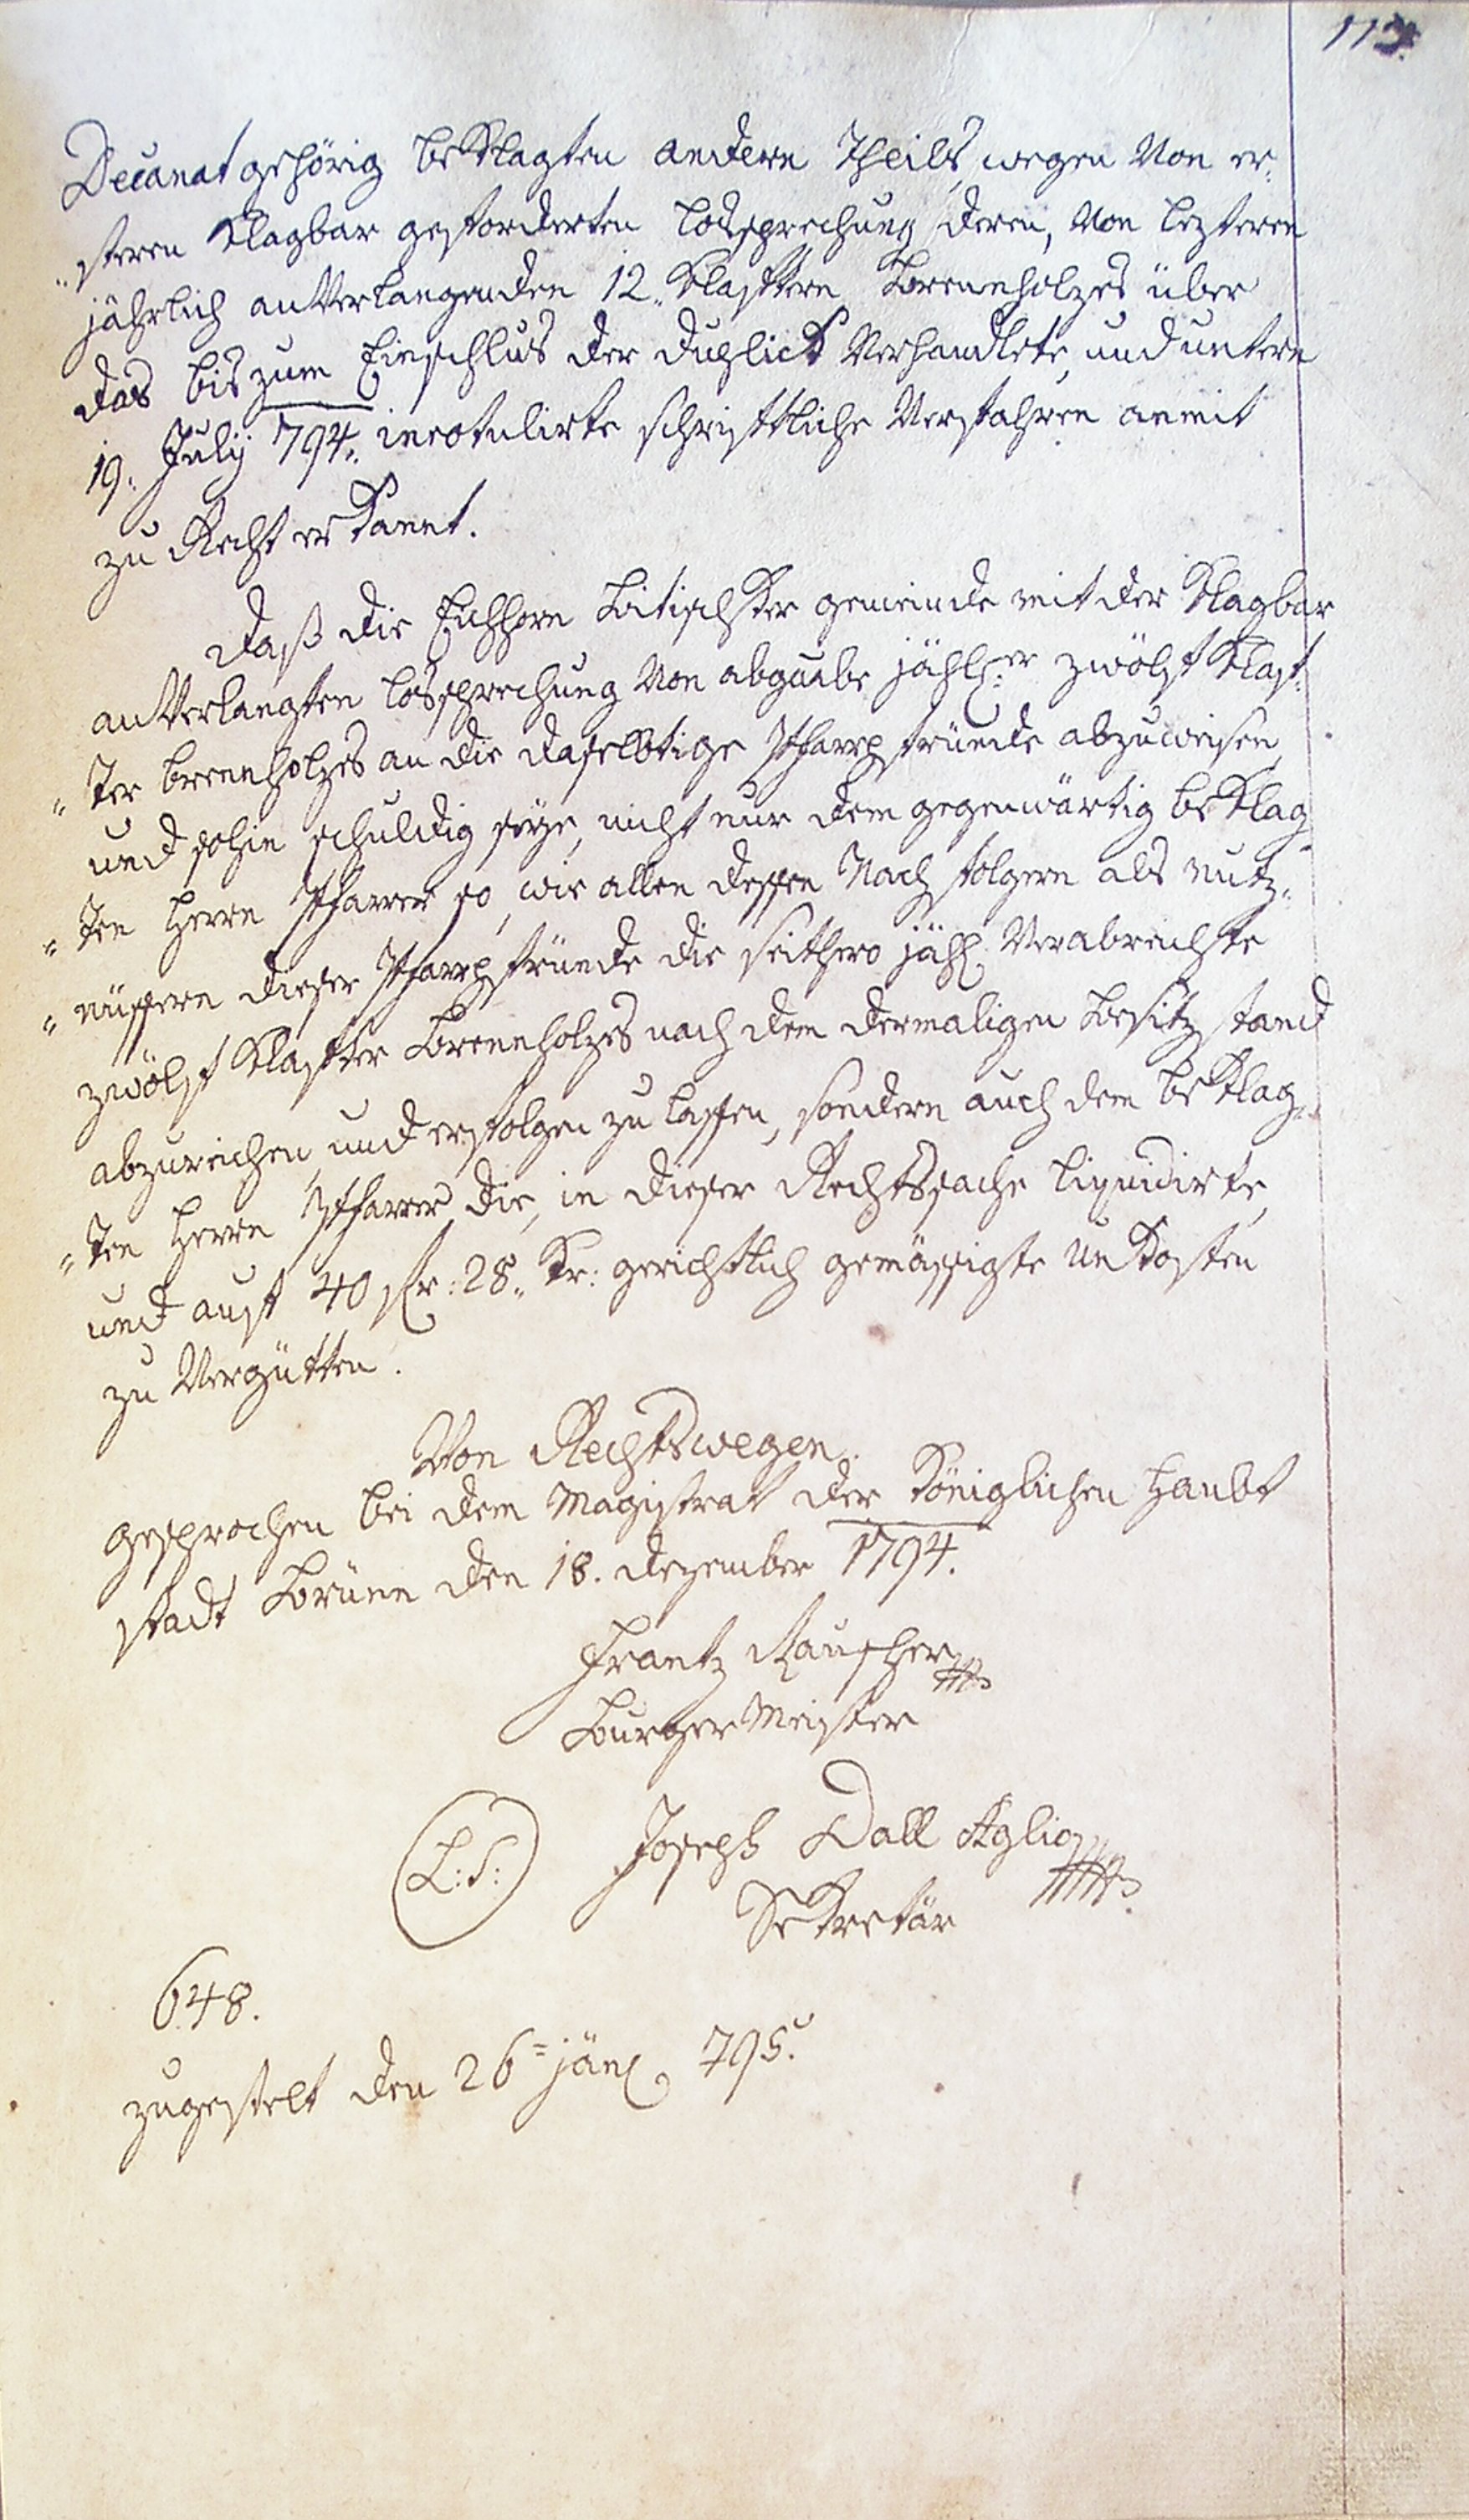 113.
Decanat gehörig beklagten andern Theils, wegen von er¬
"steren klagbar geforderten lossprechung deren, von lezteren
jährlich anverlangenden 12. Klaftern Brennholzes über
das bis zum Einschlus der Duplick verhandlete, und untern
19. Julij 794. inrotulirte schriftliche Verfahren anmit
zu Recht erkannt.
Daß die Eichhorn Bitischker gemeinde mit der klagbar
anverlangten lossprechung von abgaabe jährl:er zwölf Klaf¬
"ter brennholzes an die daselbstige Pfarrpfründe abzuweisen,
und sohin schuldig seye, nicht nur dem gegenwärtig beklag¬
"ten Herrn Pfarrer so, wie allen dessen Nachfolgern als nutz¬
"nüssern dieser Pfarrpfründe die seithero jähl: verabreichte
zwölf Klafter Brennholzes nach dem dermaligen besitzstand
abzureichen, und erfolgen zu lassen, sondern auch dem beklag¬
"ten Herrn Pfarrer die, in dieser Rechtssache liquidirte,
und auf 40 fr: 28. kr: gerichtlich gemässigte Unkosten
zu vergütten.
Von Rechtswegen.
gesprochen bei dem Magistrat der königlichen Haubt
stadt Brünn den 18. Dezember 1794.
Frantz Rauscher
BurgerMeister
L:S: Joseph Dall Aglio
Sekretär
648.
zugestelt den 26= jän: 795.